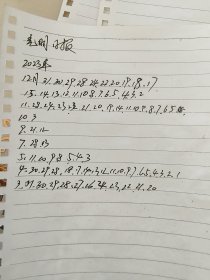 光明日报
2023年
12月.31.30.29.28.24.22.20.19.18.17
15.14.13.12.11.10.8.7.6.5.4.3.2
11.28.25.23.22.21.20.19.14.11.10.9.8.7.6.5
10.3
9.21.12
7.28.13
5.11.10.9.8.5.4.3
4.30.29.28.18.7.14.13.12.11.10.9.7.6.5.4.3.2.1
3.31.30.29.28.27.26.24.23.22.21.20